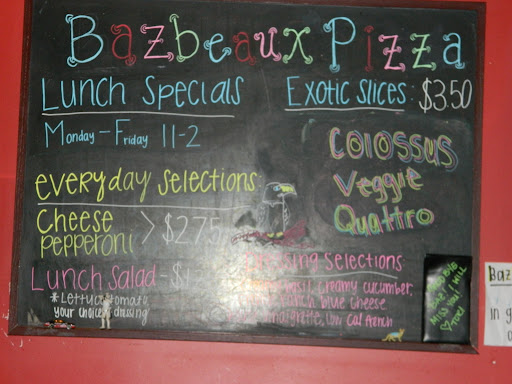 Bazbeaux Pizza
Lunch Specials
Monday - Friday 11-2
Exotic Slices: $3.50
Colossus
Veggie
Quattro
everyday selections
Cheese
pepperoni > $2.75
Lunch Salad - $1
*Lettuce, tomato,
your choice dressing
Dressing Selections
creamy cucumber,
ranch blue cheese
low cal french
Miss
Baz
in g